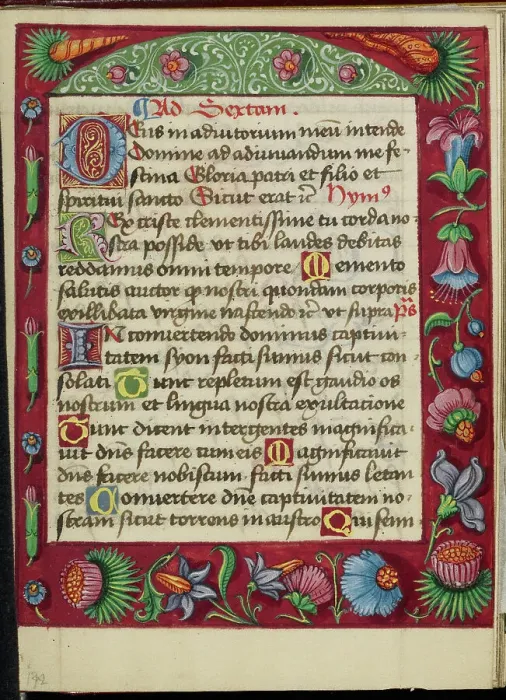 Ad Sextam.
Deus in adiutorium meū intende
Domine ad adiuvandum me fe-
stina Gloria patri et filio et
spiritui sancto Sicut erat ꝛc̄ Hymꝰ
Rex criste clementissime tu corda no-
stra posside vt tibi laudes debitas
reddamus omni tempore Memento
salutis auctor ꝙ nostri quondam corporis
ex illibata virgine nascendo ꝛc̄ vt supra p̄s
IN convertendo dominus captivi-
tatem syon facti sumus sicut con-
solati Tunc repletum est gaudio os
nostrum et lingua nostra exultatione
Tunc dicent inter gentes magnifica-
vit dn̄s facere cum eis Magnificavit
dn̄s facere nobiscum facti sumus letan
tes Convertere dn̄e captivitatem no-
stram sicut torrens in austro Qui semi